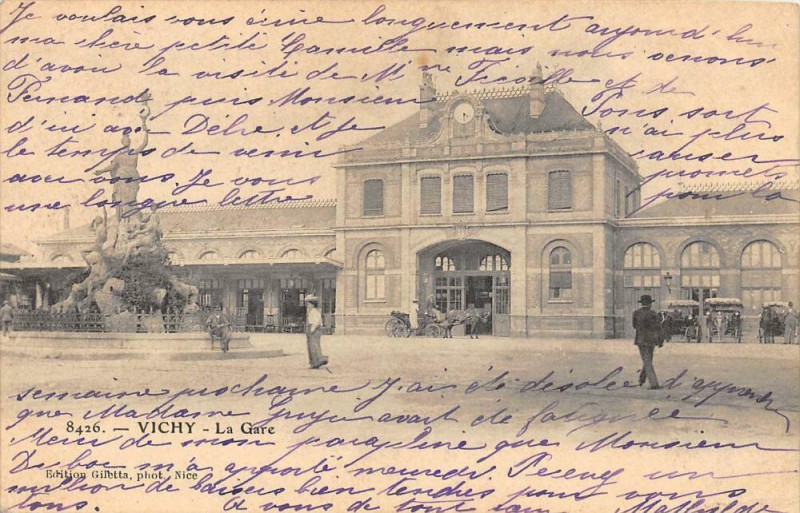 Je voulais vous écrire longuement aujourd'hui
ma chère petite Camille mais nous venons
d'avoir la visite de Mme et de
Fernand puis Monsieur Tous sort
d'ici avec Debre. et je n'ai plus
le temps de venir causer
avec vous. Je vous promets
une longue lettre pour la
semaine prochaine J'ai été désolée d'apprendre
que Madame avait été fatiguée
8426. — VICHY - La Gare
Merci de mon parapluie que Monsieur
Dubac m'a apporté mercredi. Recevez un
Edition Giletta, phot., Nice
million de baisers bien tendres pour vous
tous. A vous de tout cœur Mathilde